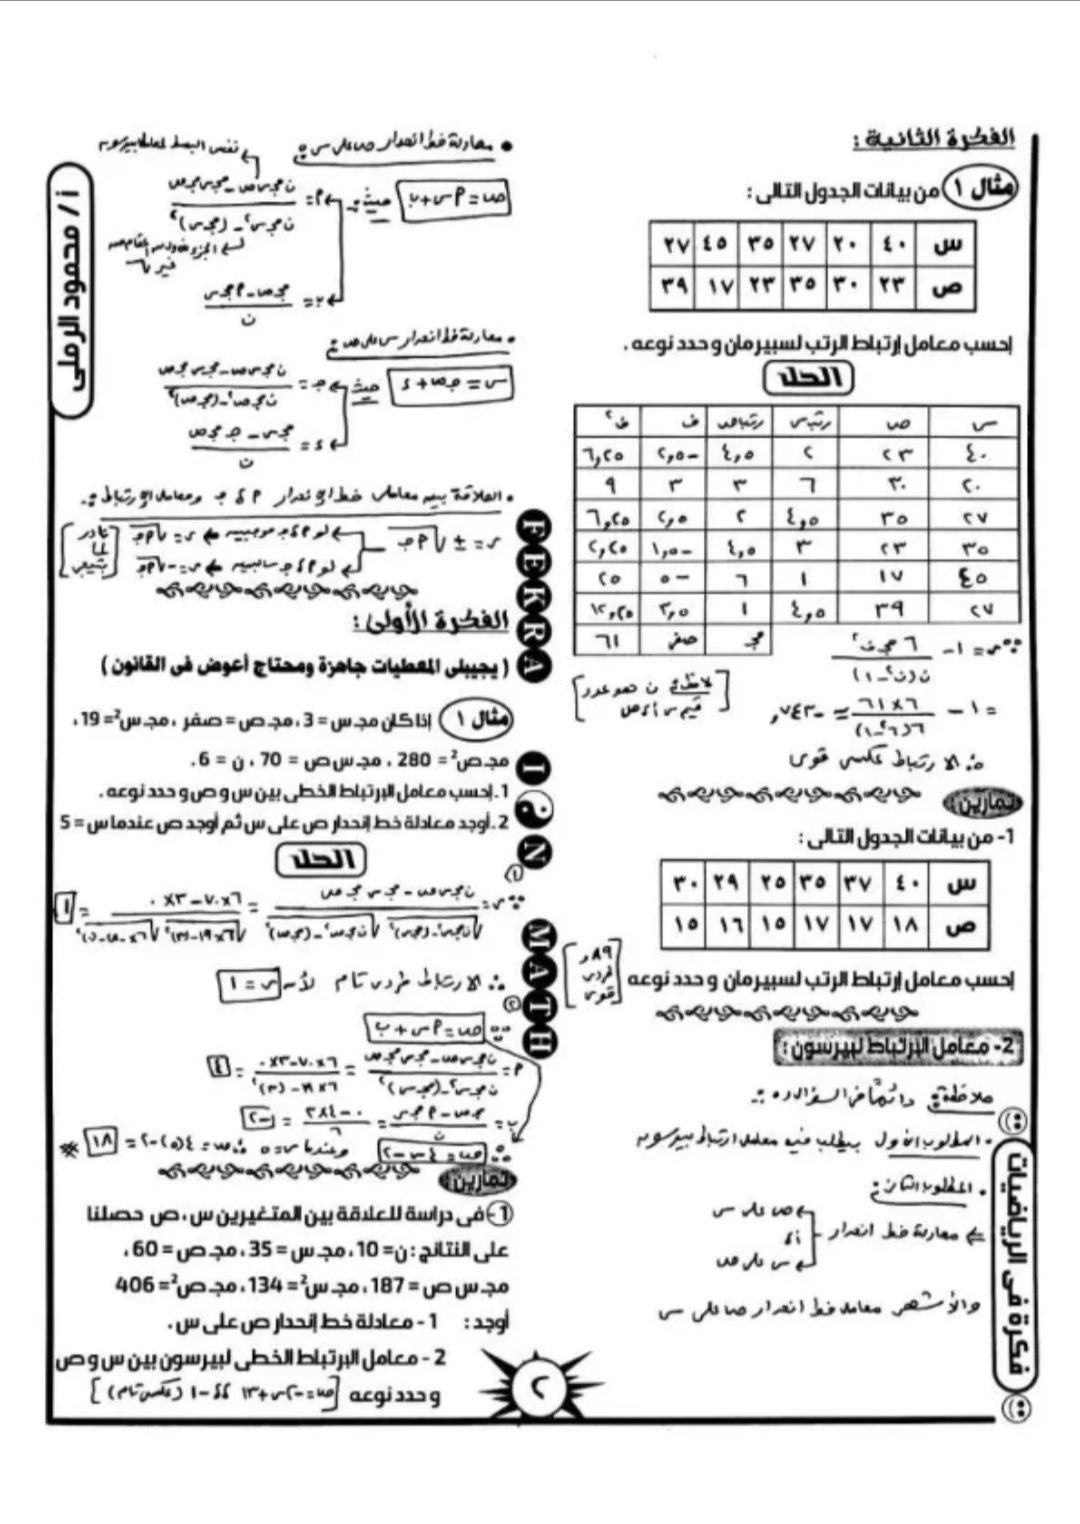 الفكرة الثانية :
مثال ١ من بيانات الجدول التالى :
س ٤٠ ٢٠ ٢٧ ٣٥ ٤٥ ٢٧
ص ٢٣ ٣٠ ٣٥ ٢٣ ١٧ ٣٩
احسب معامل إرتباط الرتب لسبيرمان وحدد نوعه .
الحل
س ص رتب س رتب ص ف ف٢
٤٠ ٢٣ ٢ ٤,٥ -٢,٥ ٦,٢٥
٢٠ ٣٠ ٦ ٣ ٣ ٩
٢٧ ٣٥ ٤,٥ ٢ ٢,٥ ٦,٢٥
٣٥ ٢٣ ٣ ٤,٥ -١,٥ ٢,٢٥
٤٥ ١٧ ١ ٦ -٥ ٢٥
٢٧ ٣٩ ٤,٥ ١ ٣,٥ ١٢,٢٥
مجـ صفر ٦١
∵ ر = ١ - ٦ مجـ ف٢ / ن(ن٢ - ١)
= ١ - ٦×٦١ / ٦(٦٢-١) = -٧٤٣,
[لاحظ أن ن هو عدد قيم س أو ص]
∴ الارتباط عكسى قوى
تمارين
1- من بيانات الجدول التالى :
س ٤٠ ٣٧ ٣٥ ٢٥ ٢٩ ٣٠
ص ١٨ ١٧ ١٧ ١٥ ١٦ ١٥
احسب معامل إرتباط الرتب لسبيرمان وحدد نوعه
[٨٩, طردى قوى]
2- معامل الإرتباط لبيرسون :
ملاحظة : دائماً فى السؤال ده :-
• المطلوب الأول بيطلب فيه معامل ارتباط بيرسون
• المطلوب الثانى :
معادلة خط انحدار
ص على س
أو
س على ص
والأشهر معادلة خط انحدار ص على س
فكرة فى الرياضيات
• معادلة خط انحدار ص على س :
ص = أ س + ب حيث
نفس البسط لمعامل بيرسون
أ = ن مجـ س ص - مجـ س مجـ ص / ن مجـ س٢ - (مجـ س)٢
ب = مجـ ص - أ مجـ س / ن
• معادلة خط انحدار س على ص :
س = جـ ص + د حيث
جـ = ن مجـ س ص - مجـ س مجـ ص / ن مجـ ص٢ - (مجـ ص)٢
د = مجـ س - جـ مجـ ص / ن
• العلاقة بين معاملى خط الانحدار أ ، جـ ومعامل الارتباط :
ر = ± √أ جـ
لو أ ، جـ موجبين ← ر = √أ جـ
لو أ ، جـ سالبين ← ر = -√أ جـ
[نادر لما بتيجى]
الفكرة الأولى :
( يجيبلى المعطيات جاهزة ومحتاج أعوض فى القانون )
مثال ١ إذا كان مجـ س = 3 ، مجـ ص = صفر ، مجـ س²= 19 ،
مجـ ص² = 280 ، مجـ س ص = 70 ، ن = 6 .
1. إحسب معامل الإرتباط الخطى بين س و ص وحدد نوعه .
2. أوجد معادلة خط إنحدار ص على س ثم أوجد ص عندما س = 5
الحل
(١)
∵ ر = ن مجـ س ص - مجـ س مجـ ص / √ن مجـ س٢ - (مجـ س)٢ √ن مجـ ص٢ - (مجـ ص)٢ = ٦×٧٠ - ٣×٠ / √٦×١٩-(٣)٢ √٦×٢٨٠-(٠)٢ = ١
∴ الارتباط طردى تام لأن ر = ١
(٢)
∵ ص = أ س + ب
أ = ن مجـ س ص - مجـ س مجـ ص / ن مجـ س٢ - (مجـ س)٢ = ٦×٧٠-٣×٠ / ٦×١٩-(٣)٢ = ٤
ب = مجـ ص - أ مجـ س / ن = ٠-٤×٣ / ٦ = -٢
∴ ص = ٤س - ٢ وعندما س = ٥ ∴ ص = ٤(٥)-٢ = ١٨ #
تمارين
1- فى دراسة للعلاقة بين المتغيرين س ، ص حصلنا
على النتائج : ن= 10 ، مجـ س = 35 ، مجـ ص = 60 ،
مجـ س ص = 187 ، مجـ س²= 134 ، مجـ ص²= 406
أوجد : 1 - معادلة خط إنحدار ص على س .
2 - معامل الإرتباط الخطى لبيرسون بين س و ص
وحدد نوعه [ص = -٢س + ١٣ ، -١ (عكسى تام)]
أ / محمود الرملى
FEKRA
IN
MATH
٢